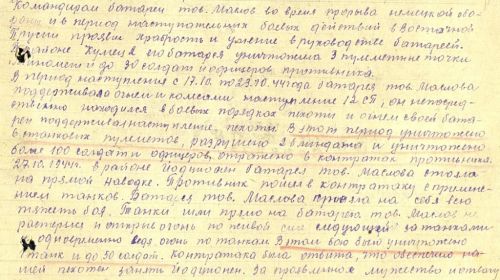 Командиром батареи тов. Маслов во время прорыва немецкой обо-
роны и в период наступательных боевых действий в Восточной
Пруссии проявил храбрость и умение в руководстве батареей.
В районе его батарея уничтожила 3 пулеметные точки
и до 30 солдат и офицеров противника.
В период наступления с 17.10 по 23.10.44 года батарея тов. Маслова
поддерживала огнем и колесами наступление 12 СП, он непосред-
ственно находился в боевых порядках пехоты и огнем своей бата-
реи поддерживал наступление пехоты. В этот период уничтожено
6 станковых пулеметов, разрушено 2 блиндажа и уничтожено
более 100 солдат и офицеров, отражено контратак противника.
27.10.1944г. в районе батарея тов. Маслова стояла
на прямой наводке. Противник пошел в контратаку с примене-
нием танков. Батарея тов. Маслова приняла на себя всю
тяжесть боя. Танки шли прямо на батарею тов. Маслов не
растерялся и открыв огонь по живой силе следующей за танками
одновременно ведя огонь по танкам. В этом бою был уничтожен
танк и до 50 солдат. Контратака была отбита, что обеспечило на-
шей пехоте занять. За проявленное мужество и отва-